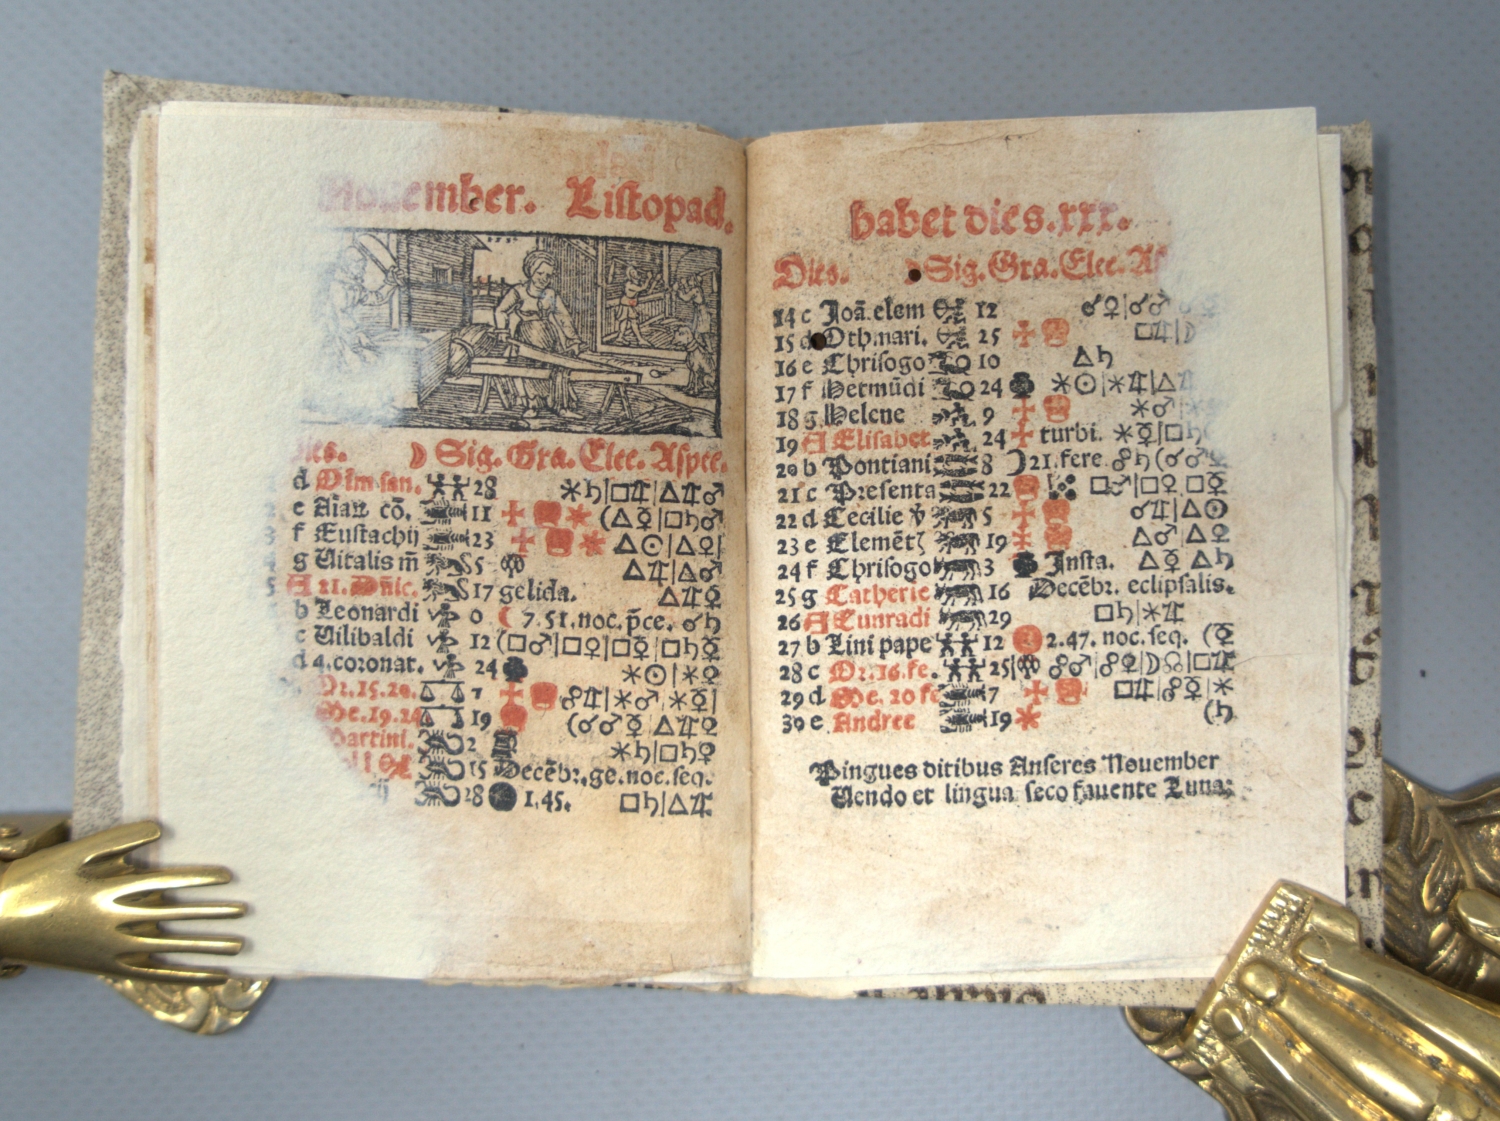 November. Listopad.
Dies. ☽ Sig. Gra. Elec. Aspec.
d Oīm san. ♊ 28 ✶♄|□♃|△♃♂
e Aīaꝝ cō. ♋ 11 ☩ ✶ (△☿|□♄♂
f Eustachij ♋ 23 ☩ ✶ △☉|△♀|
g Uitalis m̄ ♌ 5 △♃|△♂
5 A 21. Dn̄ic. ♌ 17 gelida. △♃☿
b Leonardi ♍ 0 ☾ 7.51.noc.p̄ce. ☌♄
c Uilibaldi ♍ 12 (□♂|□♀|□☿|□♄☿
d 4.coronat. ♍ 24 ✶☉|✶♀
Or.15.20. ♎ 7 ☩ ☍♃|✶♂|✶☿|
Oc.19.24 ♎ 19 (☌♂☿|△♃♀
Martini. ♏ 2 ✶♄|□♄♀
♏ 15 Decēbr.ge.noc.seq.
♏ 28 ● 1.45. □♄|△♃
habet dies.xxx.
Dies. ☽ Sig. Gra. Elec. As
14 c Joā.elem ♐ 12 ☌♀|☌♂
15 d Othmari. ♐ 25 ☩ □♃|☽
16 e Chrisogo ♑ 10 △♄
17 f Hermūdi ♑ 24 ✶☉|✶♃|△
18 g Helene ♒ 9 ☩ ✶♂
19 A Elisabet ♒ 24 ☩ turbi. ✶☿|□♄
20 b Pontiani ♓ 8 ☽ 21.fere ☍♄(☌♂
21 c Presenta ♓ 22 □♂|□♀ □☿
22 d Cecilie v̄ ♈ 5 ☩ ☌♃|△☉
23 e Clemētꝫ ♈ 19 ☩ △♂ △♀
24 f Chrisogo ♉ 3 Insta. △☿ △♄
25 g Catherie ♉ 16 Decēbr. eclipsalis.
26 A Cunradi ♉ 29 □♄|✶♃
27 b Lini pape ♊ 12 2.47. noc.seq. (☿
28 c Or.16.fe. ♊ 25 ☍♂|☍♀|☽☊|□♃
29 d Oc. 20 fe ♋ 7 ☩ □♃|☍☿|✶
30 e Andree ♋ 19 ✶ (♄
Pingues ditibus Anseres Nouember
Uendo et lingua seco fauente Luna: